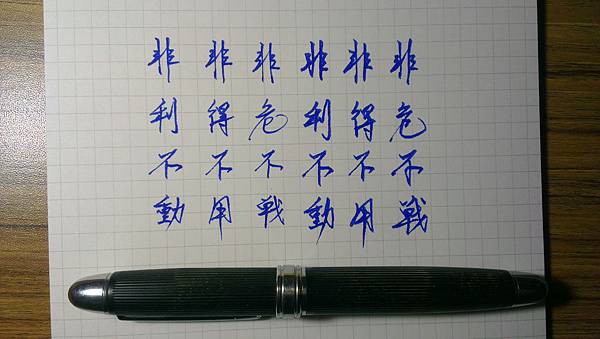 非利不動
非得不用
非危不戦
非利不動
非得不用
非危不戦